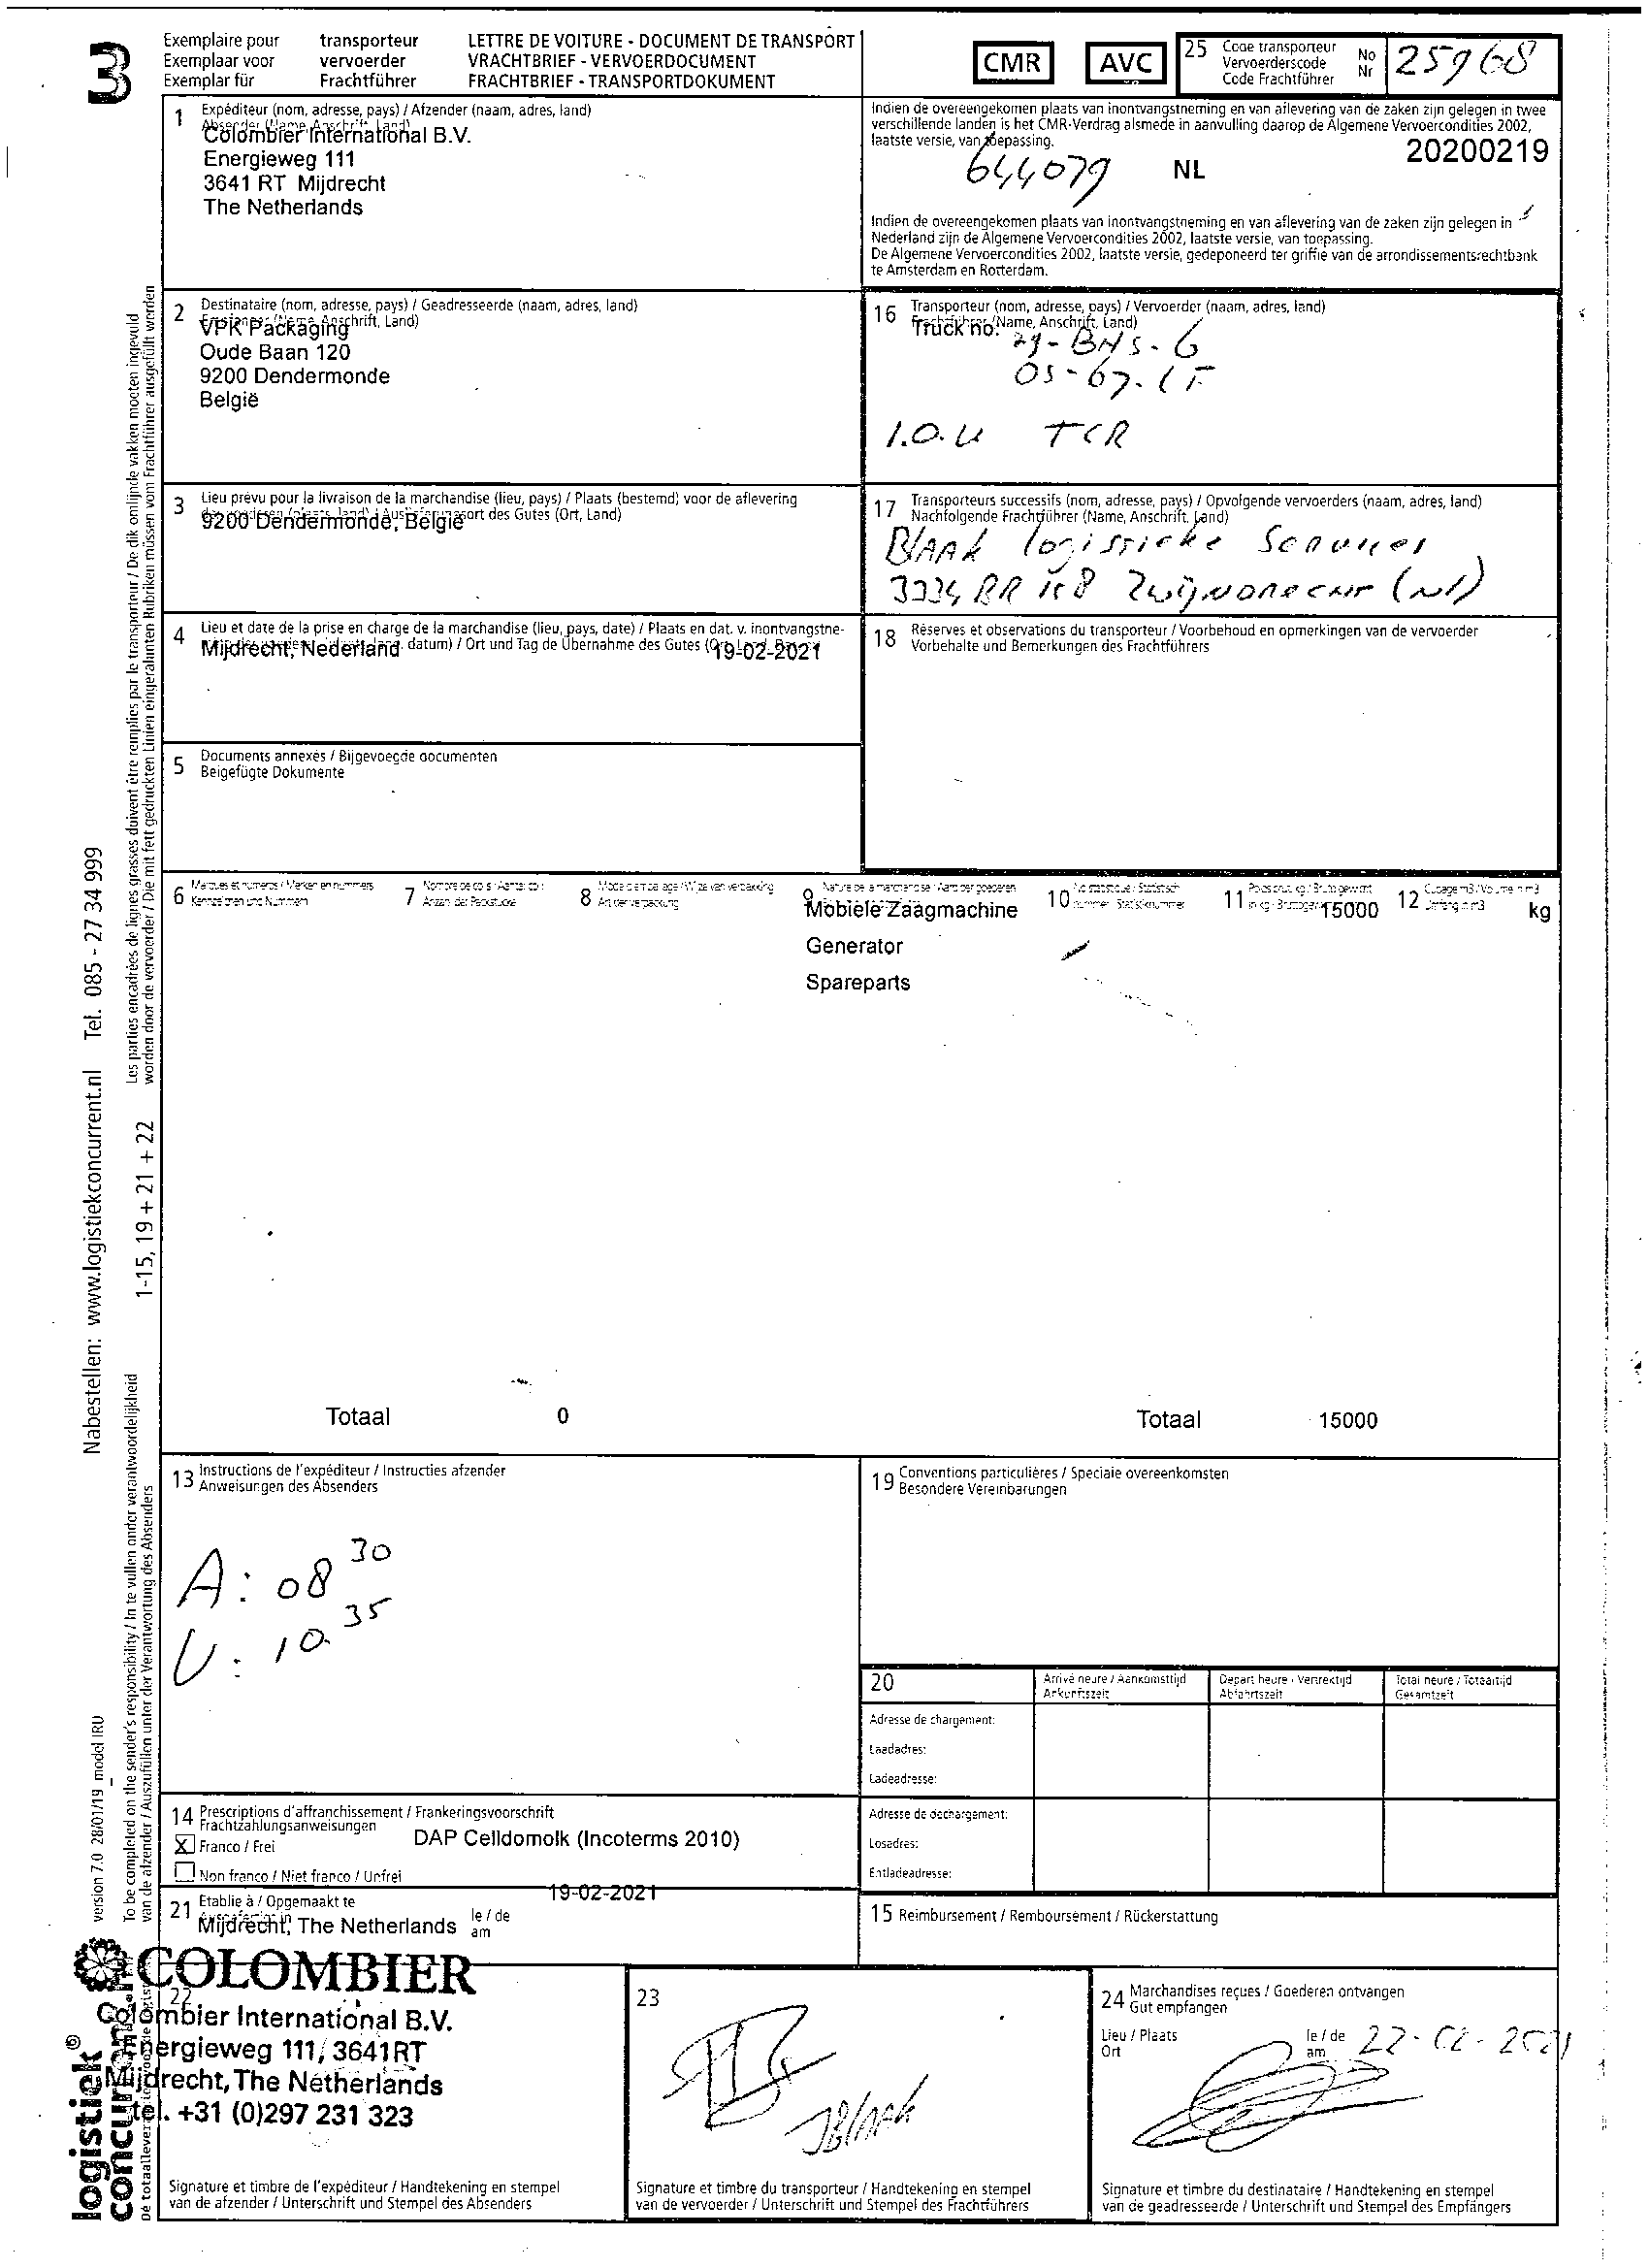 3
Exemplaire pour transporteur
Exemplaar voor vervoerder
Exemplar für Frachtführer
LETTRE DE VOITURE - DOCUMENT DE TRANSPORT
VRACHTBRIEF - VERVOERDOCUMENT
FRACHTBRIEF - TRANSPORTDOKUMENT
CMR
AVC
25 Code transporteur
Vervoerderscode
Code Frachtführer
No
Nr
25968
1 Expéditeur (nom, adresse, pays) / Afzender (naam, adres, land)
Absender (Name, Anschrift, Land)
Colombier International B.V.
Energieweg 111
3641 RT Mijdrecht
The Netherlands
Indien de overeengekomen plaats van inontvangstneming en van aflevering van de zaken zijn gelegen in twee
verschillende landen is het CMR-Verdrag alsmede in aanvulling daarop de Algemene Vervoercondities 2002,
laatste versie, van toepassing.
20200219
644079 NL
Indien de overeengekomen plaats van inontvangstneming en van aflevering van de zaken zijn gelegen in
Nederland zijn de Algemene Vervoercondities 2002, laatste versie, van toepassing.
De Algemene Vervoercondities 2002, laatste versie, gedeponeerd ter griffie van de arrondissementsrechtbank
te Amsterdam en Rotterdam.
2 Destinataire (nom, adresse, pays) / Geadresseerde (naam, adres, land)
VPK Packaging
Oude Baan 120
9200 Dendermonde
België
16 Transporteur (nom, adresse, pays) / Vervoerder (naam, adres, land)
Frachtführer (Name, Anschrift, Land)
Truck no:
29-BNS-6
OS-67-LF
I.O.U TCR
3 Lieu prévu pour la livraison de la marchandise (lieu, pays) / Plaats (bestemd) voor de aflevering
9200 Dendermonde, België
17 Transporteurs successifs (nom, adresse, pays) / Opvolgende vervoerders (naam, adres, land)
Nachfolgende Frachtführer (Name, Anschrift, Land)
Blaak logistieke Services
3334 BR 158 Zwijndrecht (Nl)
4 Lieu et date de la prise en charge de la marchandise (lieu, pays, date) / Plaats en dat. v. inontvangstne-
Mijdrecht, Nederland
datum) / Ort und Tag de Übernahme des Gutes
19-02-2021
18 Réserves et observations du transporteur / Voorbehoud en opmerkingen van de vervoerder
Vorbehalte und Bemerkungen des Frachtführers
5 Documents annexés / Bijgevoegde documenten
Beigefügte Dokumente
6 Marques et numéros / Merken en nummers
Kennzeichen und Nummern
7
8
9
10
11
12
Mobiele Zaagmachine 15000 kg
Generator
Spareparts
Totaal 0 Totaal 15000
13 Instructions de l'expéditeur / Instructies afzender
Anweisungen des Absenders
A: 08 30
V: 10. 35
19 Conventions particulières / Speciale overeenkomsten
Besondere Vereinbarungen
20
Arrivé heure / Aankomsttijd
Ankunftszeit
Départ heure / Vertrektijd
Abfahrtszeit
Total heure / Totaaltijd
Gesamtzeit
Adresse de chargement:
Laadadres:
Ladeadresse:
Adresse de déchargement:
Losadres:
Entladeadresse:
14 Prescriptions d'affranchissement / Frankeringsvoorschrift
Frachtzahlungsanweisungen
X Franco / Frei
DAP Celldomolk (Incoterms 2010)
Non franco / Niet franco / Unfrei
21 Etablie à / Opgemaakt te
Mijdrecht, The Netherlands
le / de
am
19-02-2021
15 Reimbursement / Remboursement / Rückerstattung
COLOMBIER
22
Colombier International B.V.
Energieweg 111, 3641RT
Mijdrecht, The Netherlands
tel. +31 (0)297 231 323
Signature et timbre de l'expéditeur / Handtekening en stempel
van de afzender / Unterschrift und Stempel des Absenders
23
JBlaak
Signature et timbre du transporteur / Handtekening en stempel
van de vervoerder / Unterschrift und Stempel des Frachtführers
24 Marchandises reçues / Goederen ontvangen
Gut empfangen
Lieu / Plaats
Ort
le / de
am
22-02-2021
Signature et timbre du destinataire / Handtekening en stempel
van de geadresseerde / Unterschrift und Stempel des Empfängers
Nabestellen: www.logistiekconcurrent.nl Tel. 085 - 27 34 999
Les parties encadrées de lignes grasses doivent être remplies par le transporteur / De dik omlijnde vakken moeten ingevuld
worden door de vervoerder / Die mit fett gedruckten Linien eingerahmten Rubriken müssen vom Frachtführer ausgefüllt werden
1-15, 19 + 21 + 22
To be completed on the sender's responsibility / In te vullen onder verantwoordelijkheid
van de afzender / Auszufüllen unter der Verantwortung des Absenders
version 7.0 28/01/19 model IRU
logistiek